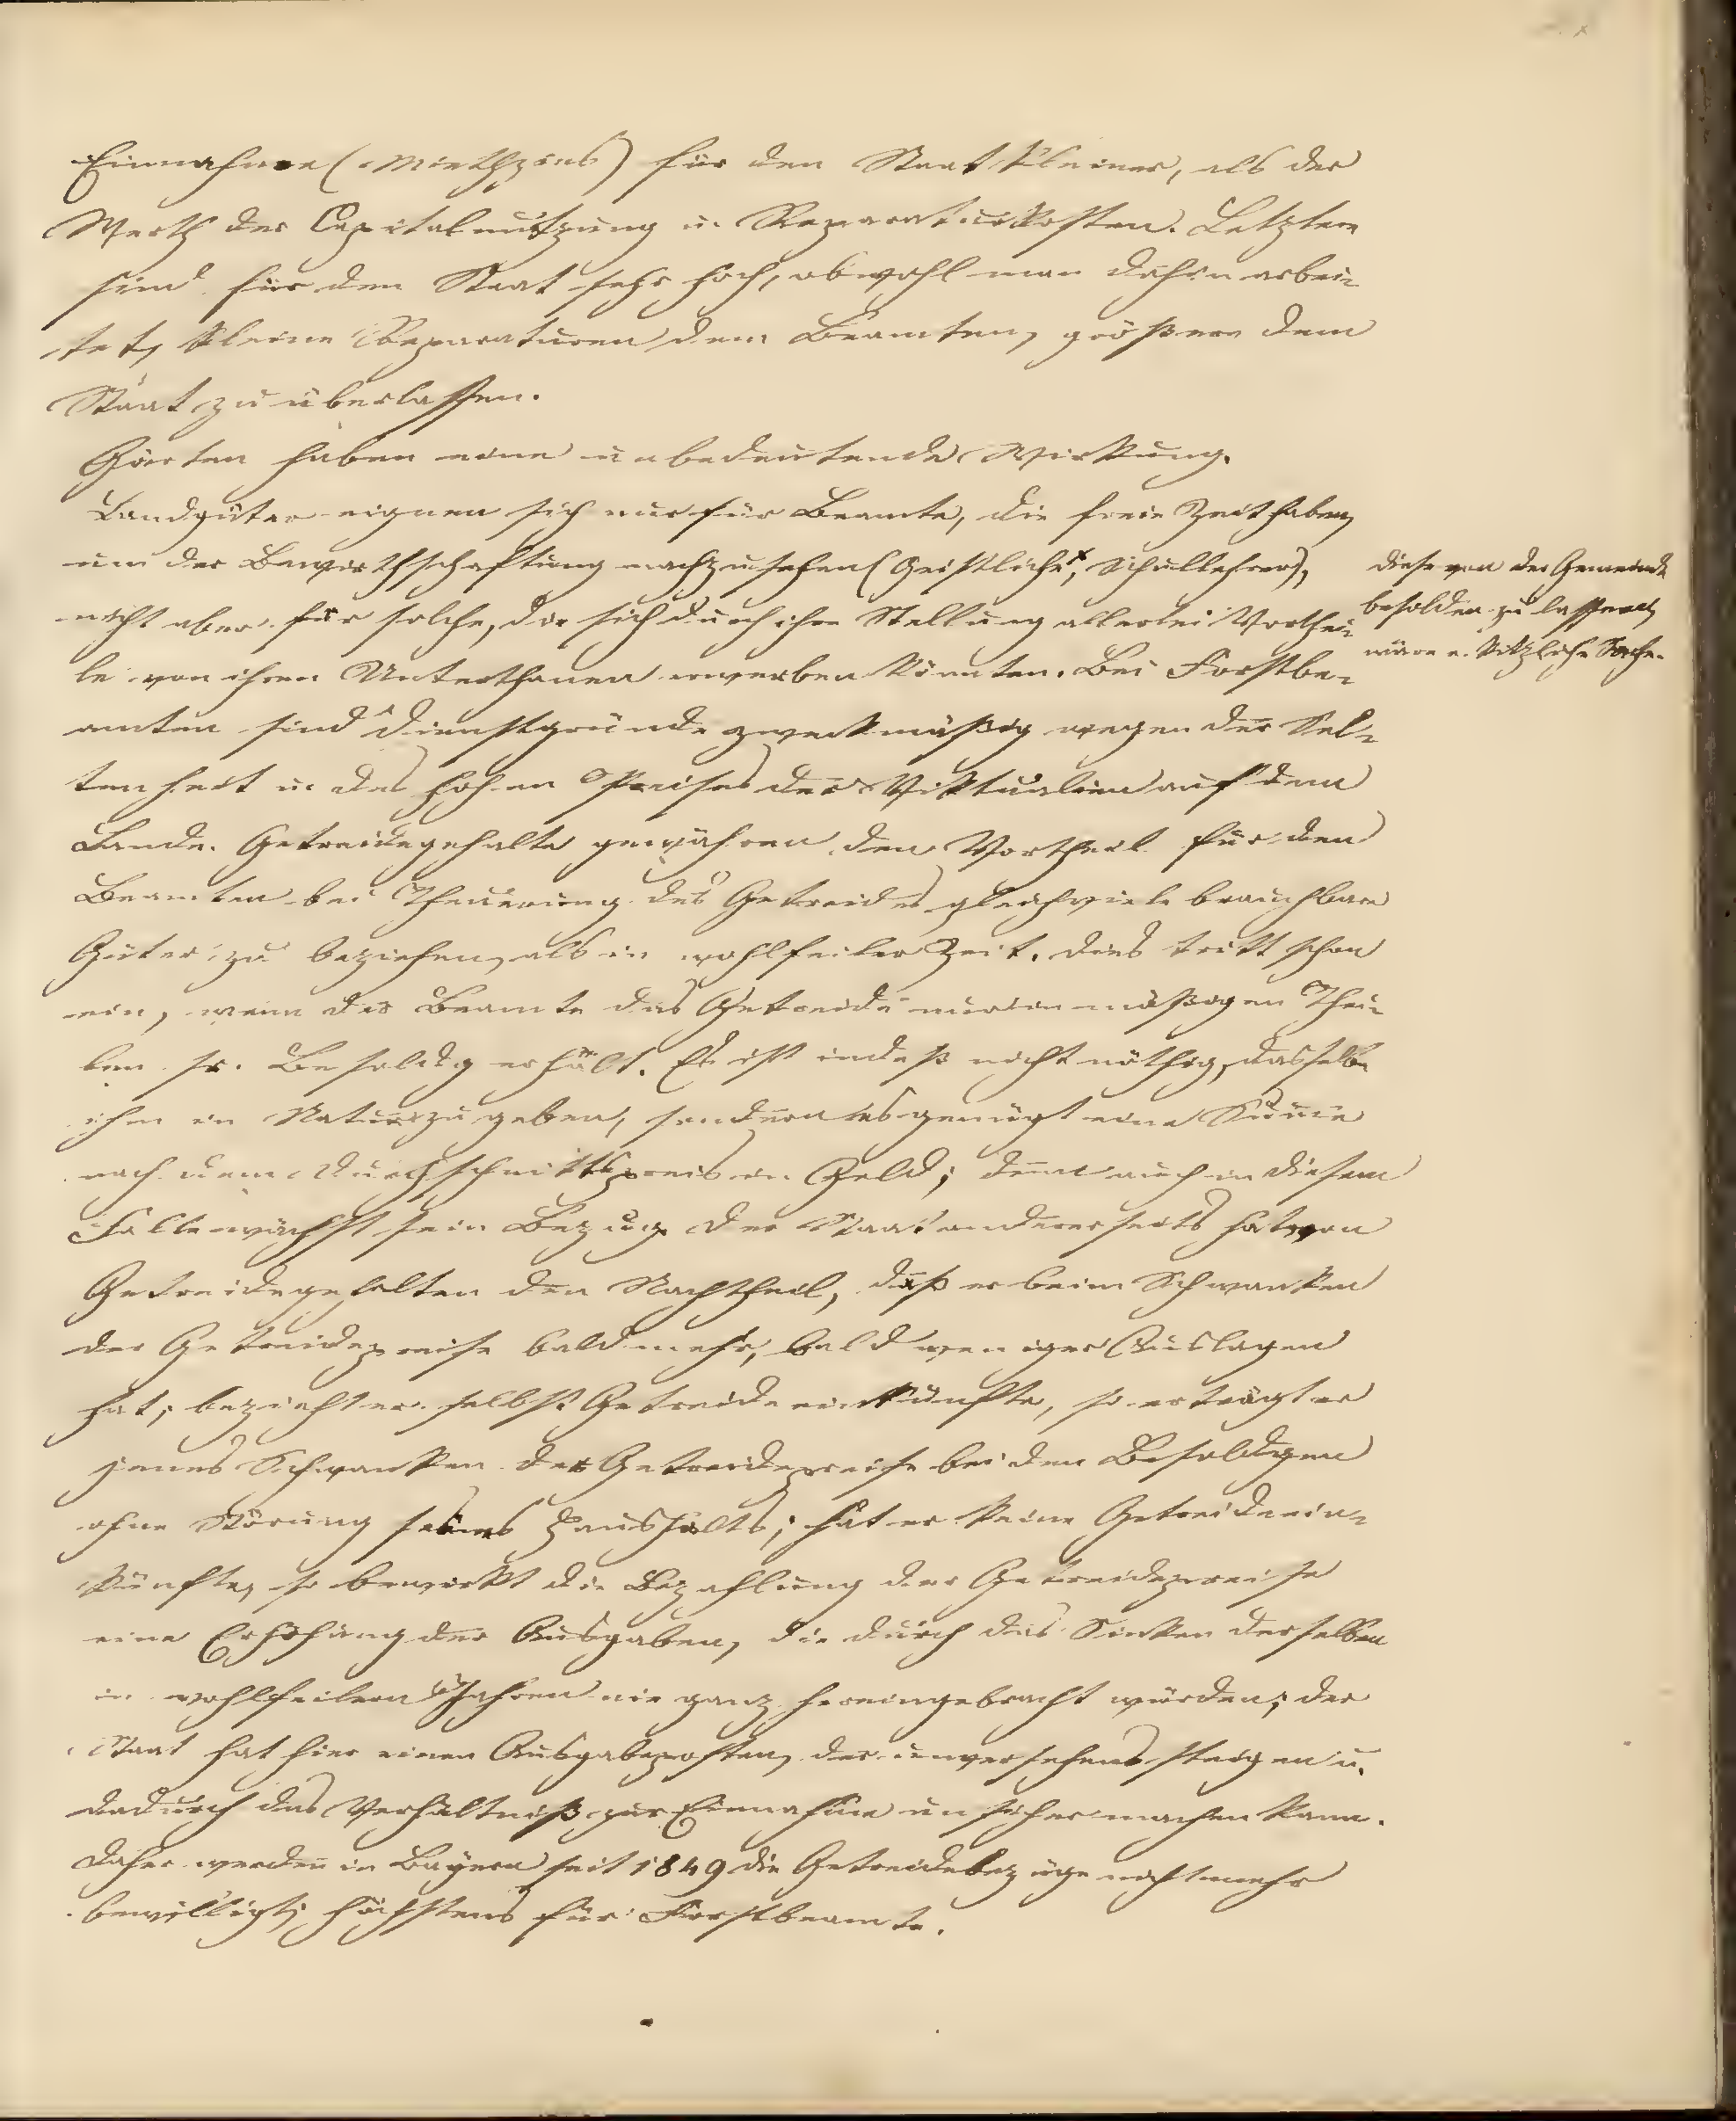 Einnahme (Miethzins) für den Staat kleiner, als der
Werth der Capitalnutzung u. Reparaturkosten. Letztere
sind für den Staat sehr hoch, obwohl man dahin arbei-
tet, kleine Reparaturen dem Beamten, größere dem
Staat zu überlassen.
Gärten haben eine unbedeutende Wirkung.
Landgüter eignen sich nur für Beamte, die freie Zeit haben,
um der Bewirthschaftung nachzusehen (Geistliche x, Schullehrer),
nicht aber für solche, die sich durch ihre Stellung allerlei Vorthei-
le von ihren Unterthanen erwerben könnten. Bei Forstbe-
amten sind Dienstgründe zweckmäßig wegen der Sel-
tenheit u. des hohen Preises der Viktualien auf dem
Lande. Getreidegehalte gewähren den Vortheil für den
Beamten bei Theuerung des Getreides gleichviele brauchbare
Güter zu beziehen, als in wohlfeiler Zeit. Dies tritt schon
ein, wenn der Beamte das Getreide nur im mäßigen Thei-
len sr. Besoldg erhält. Es ist indeß nicht nöthig, dasselbe
ihm in Natur zu geben, sondern es genügt eine Sume
nach dem Durchschnittspreis in Geld; denn auch in diesem
Falle wächst sein Bezug. Der Staat andererseits hat von
Getreidegehalten den Nachtheil, daß er beim Schwanken
der Getreidepreise bald mehr, bald weniger Auslagen
hat; bezieht er selbst Getreideeinkünfte, so erträgt er
jenes Schwanken der Getreidepreise bei den Besoldgen
ohne Störung seines Haushalts; hat er keine Getreideein-
künfte, so bewirkt die Bezahlung der Getreidepreise
eine Erhöhung der Ausgaben, die durch das Sinken derselben
in wohlfeilern Jahren nie ganz hereingebracht würden; der
Staat hat hier einen Ausgabeposten, der unversehens steigen u.
dadurch das Verhältniß zur Einnahme unsicher machen kann.
Daher werden in Bayern seit 1849 die Getreidebezüge nicht mehr
bewilligt, höchstens für Forstbeamte.
diese von der Gemeinde
besolden zu lassen,
wäre e. kitzliche Sache.